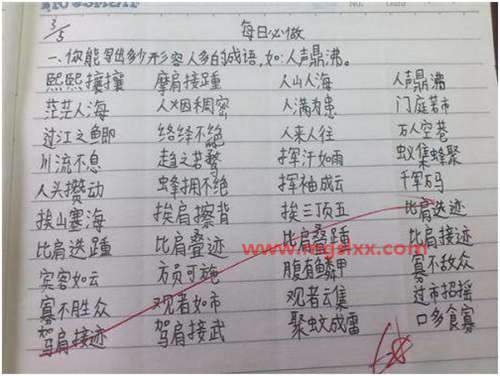 3/5 每日必做
一、你能写出多少形容人多的成语,如:人声鼎沸。
熙熙攘攘 摩肩接踵 人山人海 人声鼎沸
茫茫人海 人烟稠密 人满为患 门庭若市
过江之鲫 络绎不绝 人来人往 万人空巷
川流不息 趋之若鹜 挥汗如雨 蚁集蜂聚
人头攒动 蜂拥不绝 挥袖成云 千军万马
挨山塞海 挨肩擦背 挨三顶五 比肩迭迹
比肩迭踵 比肩叠迹 比肩叠踵 比肩接迹
宾客如云 方员可施 腹有鳞甲 寡不敌众
寡不胜众 观者如市 观者云集 过市招摇
驾肩接迹 驾肩接武 聚蚊成雷 口多食寡
www.mgslxx.com